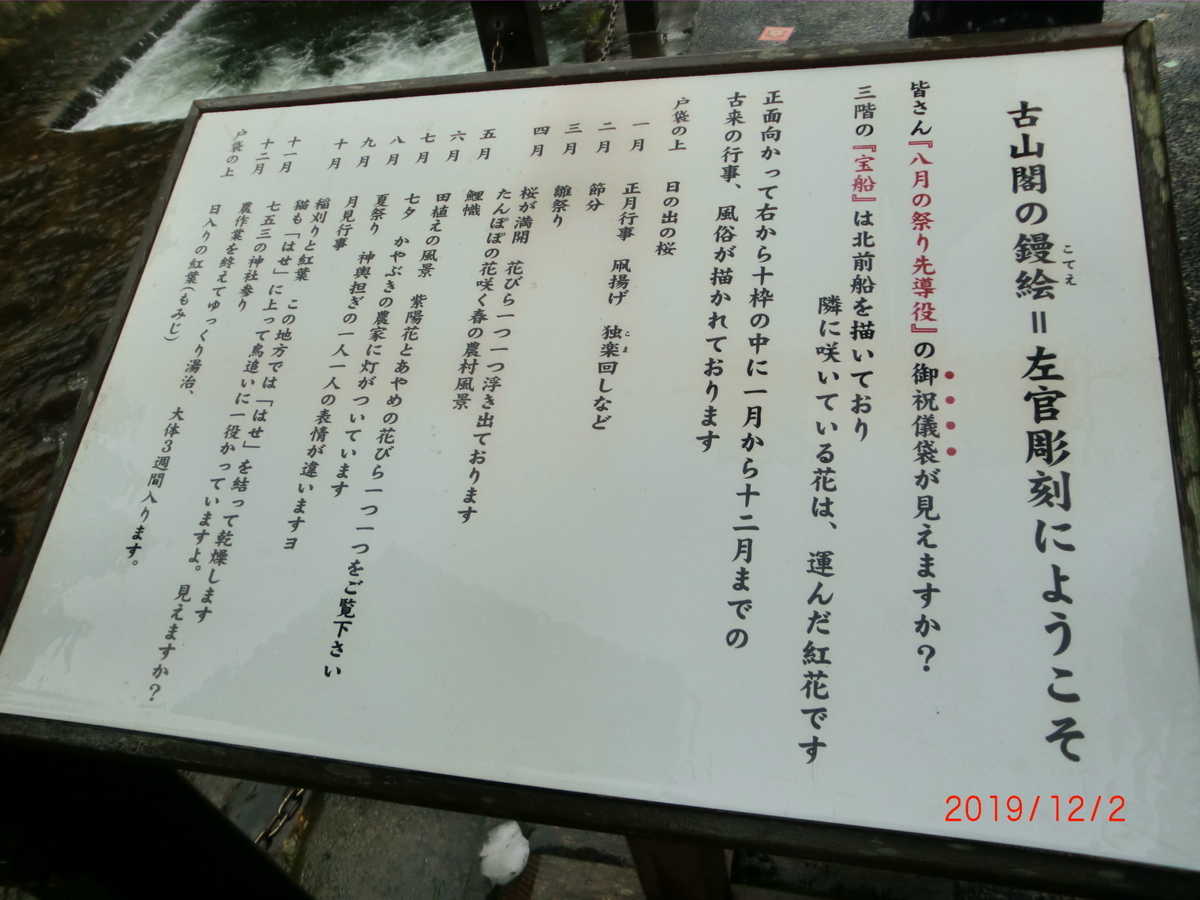 古山閣の鏝絵＝左官彫刻にようこそ
こてえ
皆さん『八月の祭り先導役』の御祝儀袋が見えますか？
三階の『宝船』は北前船を描いており
隣に咲いている花は、運んだ紅花です
正面向かって右から十枠の中に一月から十二月までの
古来の行事、風俗が描かれております
戸袋の上 日の出の桜
一月 正月行事 凧揚げ 独楽回しなど
こま
二月 節分
三月 雛祭り
四月 桜が満開 花びら一つ一つ浮き出ております
たんぽぽの花咲く春の農村風景
五月 鯉幟
六月 田植えの風景 紫陽花とあやめの花びら一つ一つをご覧下さい
七月 七夕 かやぶきの農家に灯がついています
八月 夏祭り 神輿担ぎの一人一人の表情が違いますヨ
九月 月見行事
十月 稲刈りと紅葉 この地方では「はせ」を結って乾燥します
猫も「はせ」に上って鳥追いに一役かっていますよ。見えますか？
十一月 七五三の神社参り
十二月 農作業を終えてゆっくり湯治、大体3週間入ります。
戸袋の上 日入りの紅葉(もみじ)
2019/12/2